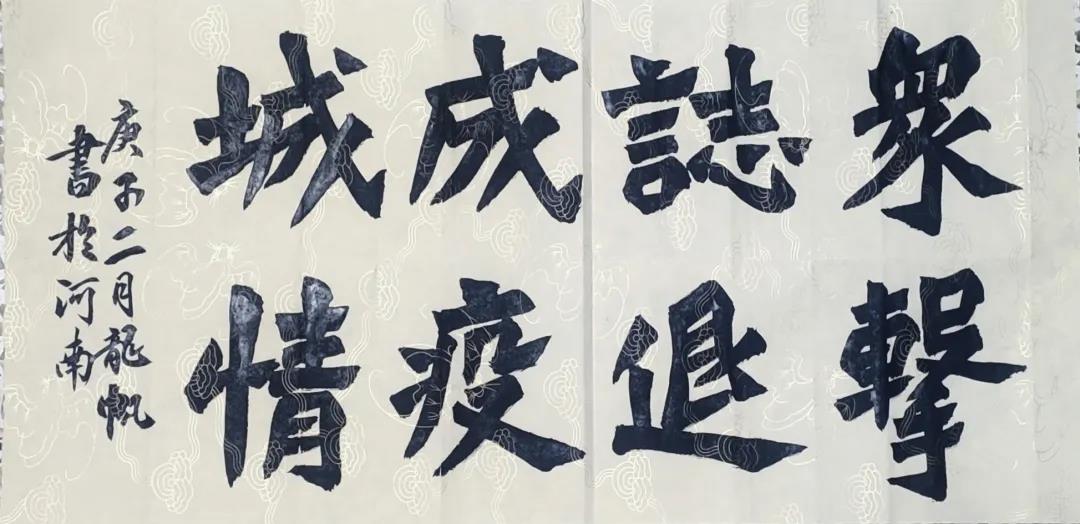 衆誌成城
擊退疫情
庚子二月龍帆
書於河南